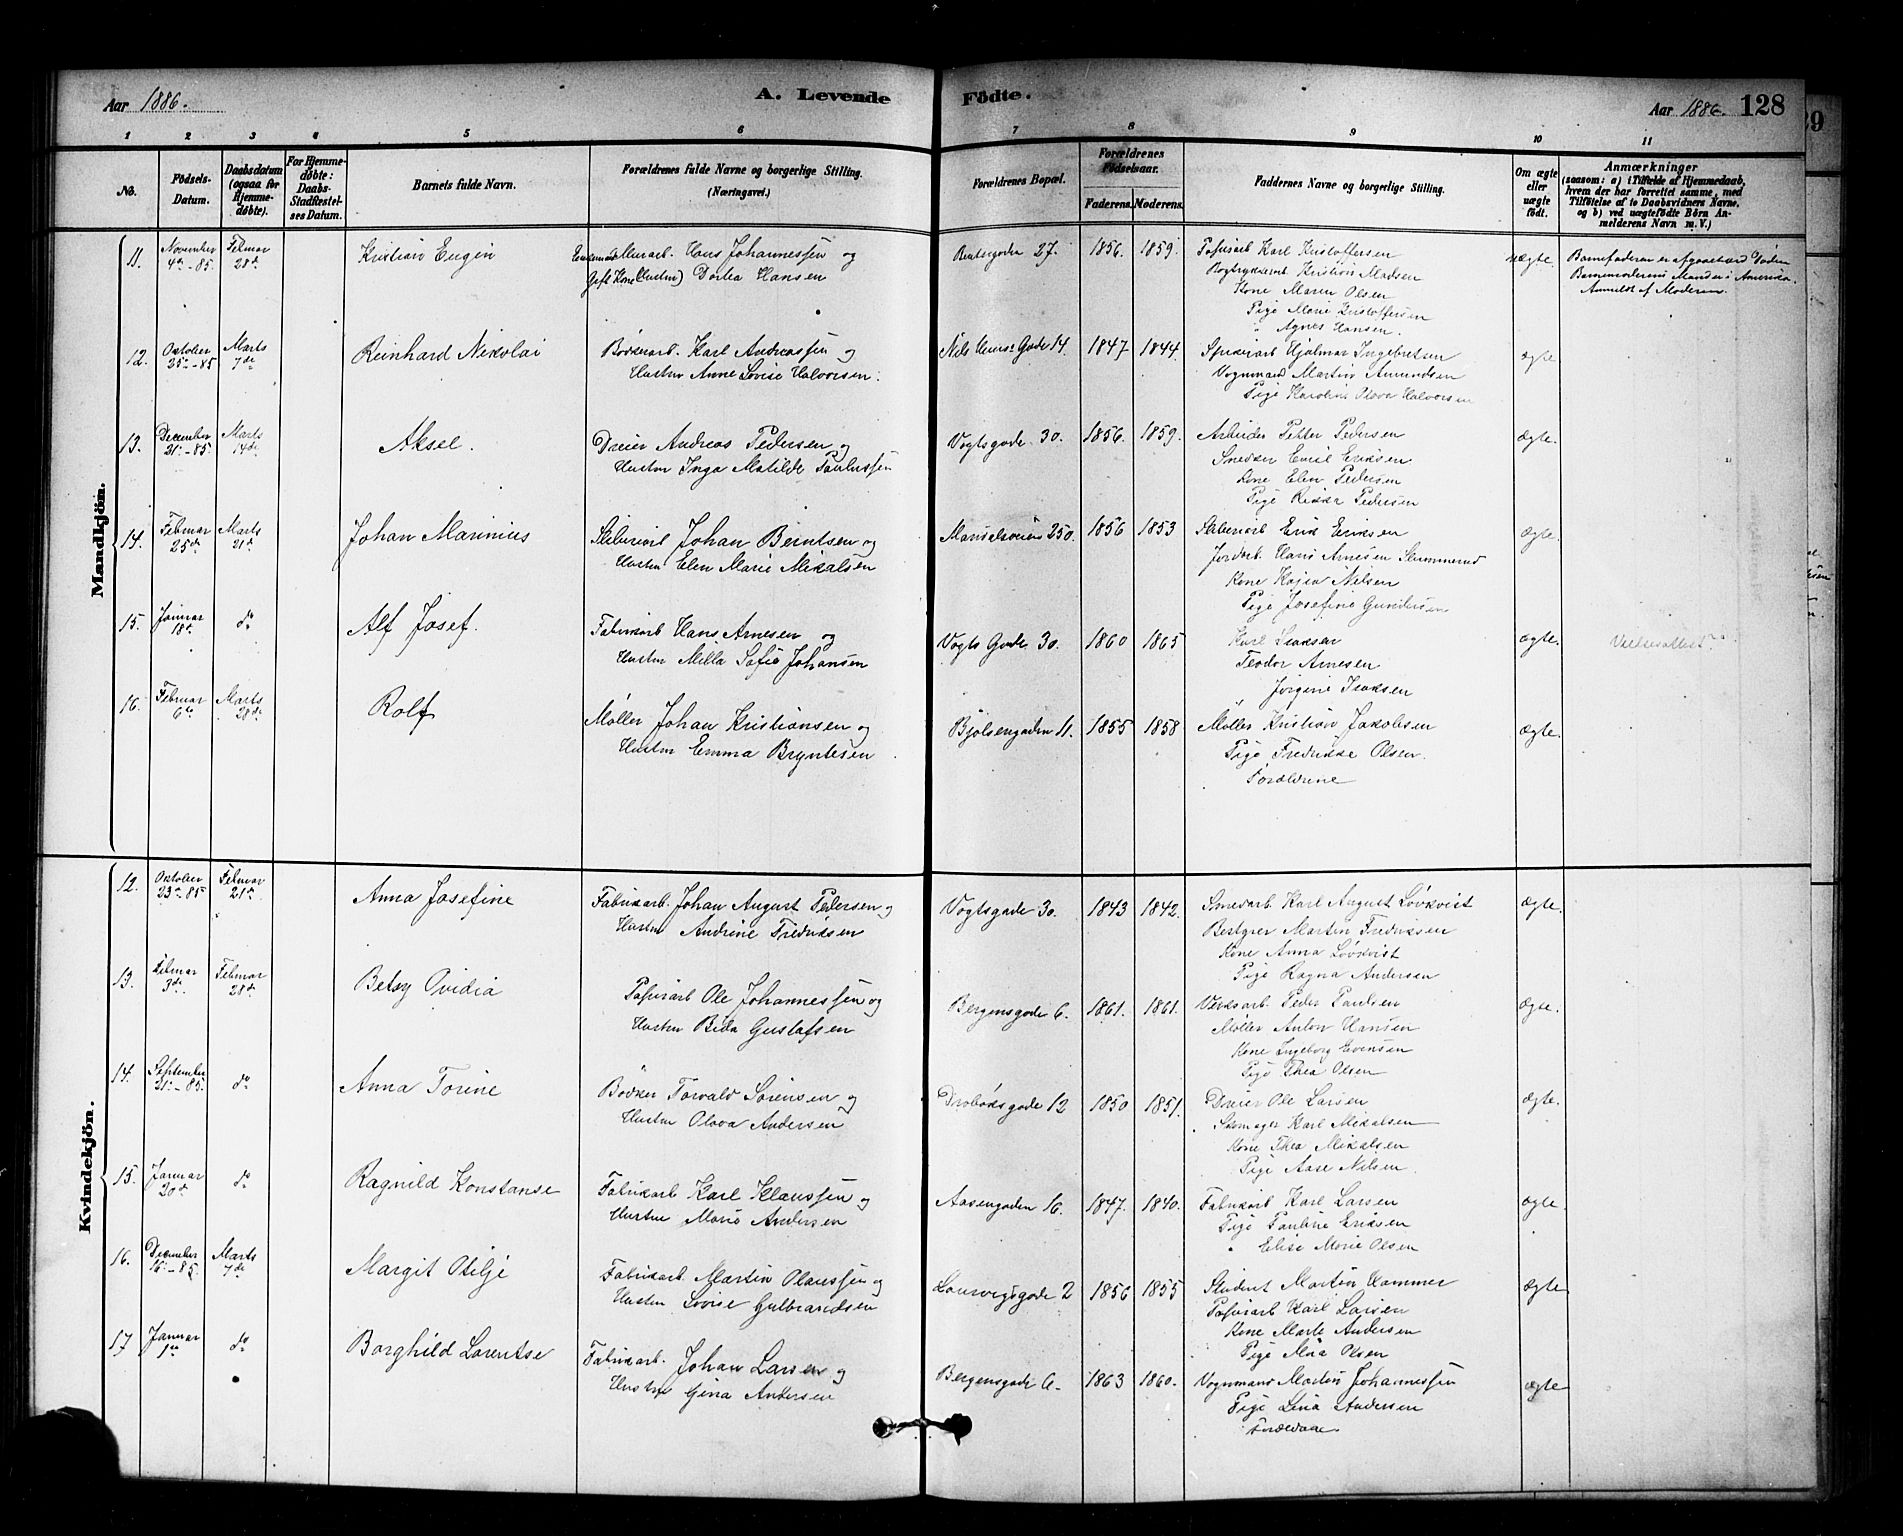 Aar 1886.
A. Levende Födte.
Aar 1886. 128
1 2 3 4 5 6 7 8 9 10 11
No.
Födsels-Datum.
Daabsdatum (ogsaa for Hjemmedøbte).
For Hjemmedøbte: Daabs-Stadfæstelses Datum.
Barnets fulde Navn.
Forældrenes fulde Navne og borgerlige Stilling. (Næringsvei.)
Forældrenes Bopæl.
Forældrenes Födselsaar.
Faderens. Moderens.
Faddernes Navne og borgerlige Stilling.
Om ægte eller uægte født.
Anmærkninger
(saasom: a) i Tilfælde af Hjemmedaab, hvem der har forrettet samme, med Tilföielse af to Daabsvidners Navne, og b) ved uægtefödte Börn Anmelderens Navn m. V.)
Mandkjön.
11. November 4de -85. Februar 28de Kristian Eugen
Murarb. Hans Johannessen og
Gift Kone (Hustru) Dortea Hansen
27. 1856. 1859.
Papirarb Karl Kristoffersen
Bogtrykkersv. Kristian Madsen
Kone Maren Olsen
Pige Marie Kristoffersen
" Agnes Hansen.
uægte.
Barnefaderen er afgaaet ved Døden
Barnemoderens Mand er i Amerika.
Anmeldt af Moderen.
12. Oktober 25de -85 Marts 7de Reinhard Nikolai
Bødkerarb. Karl Andreassen og
Hustru Anne Lovise Halvorsen.
Niels Juels Gade 14. 1847 1844.
Hjalmar Ingebretsen
Vognmand Martin Amundsen
Pige Karoline Olava Halvorsen
ægte
13. December 21de -85. Marts 14de Aksel.
Dreier Andreas Pedersen og
Hustru Inga Matilde Paulussen
Vogtsgade 30. 1856. 1859.
Arbeider Petter Pedersen
Snedker Emil Eriksen
Kone Elen Pedersen
Pige Rikka Pedersen
ægte.
14. Februar 25de Marts 21de Johan Marinius
Støberiarb Johan Berntsen og
Hustru Elen Marie Mikalsen
250. 1856 1853
Støberiarb Erik Eriksen
Jordarb. Hans Arnesen
Kone Kajsa Nilsen
Pige Josefine Gundersen
ægte.
15. Januar 18de do Alf Josef.
Fabrikarb Hans Arnesen og
Hustru Milla Sofie Johansen
Vogts Gade 30. 1860 1865
Karl Isaksen
Teodor Arnesen
Jørgine Isaksen
ægte.
Vielsesattest
16. Februar 6te Marts 28de Rolf
Møller Johan Kristiansen og
Hustru Emma Bryntesen
Bjølsengaden 11. 1855 1858
Møller Kristian Jakobsen
Pige Fredrikke Olsen.
Forældrene
ægte.
Kvindekjön.
12. Oktober 23de 85 Februar 21de Anna Josefine
Fabrikarb. Johan August Pedersen og
Hustru Andrine Fredriksen
Vogtsgade 30. 1843 1842.
Smedarb Karl August Lövkvist
Martin Fredriksen
Kone Anna Lövkvist
Pige Ragna Andersen
ægte.
13. Februar 3de Februar 28de Betsy Ovidia
Papirarb Ole Johannessen og
Hustru Beda Gustafsen
Bergensgade 6. 1861. 1861.
Verksarb. Peder Paulsen
Møller Anton Hansen
Kone Ingeborg Evensen
Pige Thea Olsen
ægte.
14. September 21de -85. do Anna Torine
Bödker Torvald Sörensen og
Hustru Olava Andersen
Drøbaksgade 12 1850 1851.
Dreier Ole Larsen
Skomager Karl Mikalsen
Kone Thea Mikalsen
Pige Aase Nilsen.
ægte.
15. Januar 20de do Ragnild Konstanse
Fabrikarb Karl Klaussen og
Hustru Marie Andersen
Aasengaden 16. 1847. 1840.
Fabrikarb Karl Larsen
Pige Pauline Eriksen
" Elise Marie Olsen
ægte
16. December 16de -85. Marts 7de Margit Otilje
Fabrikarb. Martin Olaussen og
Hustru Lovise Gulbrandsen
Laurvigsgade 2 1856 1855
Student Martin Hammer
Papirarb Karl Larsen
Kone Marte Andersen
Pige Mia Olsen
ægte
17 Januar 1ste do Borghild Lorentse
Fabrikarb. Johan Larsen og
Hustru Gina Andersen
Bergensgade 6. 1863 1860.
Vognmand Martin Johannessen
Pige Lina Andersen
Forældrene
ægte